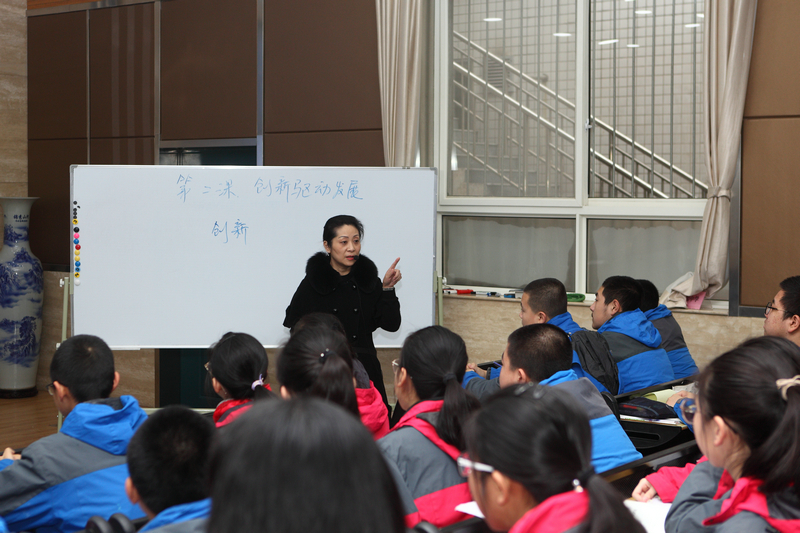 第二课 创新驱动发展
创新